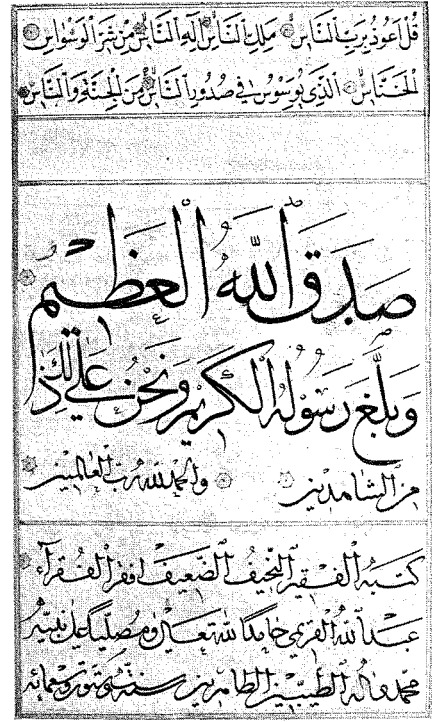 قُلْ أَعُوذُ بِرَبِّ النَّاسِ مَلِكِ النَّاسِ إِلَهِ النَّاسِ مِنْ شَرِّ الْوَسْوَاسِ
الْخَنَّاسِ الَّذِي يُوَسْوِسُ فِي صُدُورِ النَّاسِ مِنَ الْجِنَّةِ وَالنَّاسِ
صَدَقَ اللهُ الْعَظِيمُ
وَبَلَّغَ رَسُولُهُ الْكَرِيمُ وَنَحْنُ عَلَى ذَلِكَ
مِنَ الشَّاهِدِينَ وَالْحَمْدُ لِلَّهِ رَبِّ الْعَالَمِينَ
كَتَبَهُ الْفَقِيرُ النَّحِيفُ الضَّعِيفُ أَفْقَرُ الْفُقَرَاءِ
عَبْدُ اللهِ الْقَرِيمِي حَامِدًا لِلَّهِ تَعَالَى وَمُصَلِّيًا عَلَى نَبِيِّهِ
مُحَمَّدٍ وَآلِهِ الطَّيِّبِينَ الطَّاهِرِينَ سَنَةَ